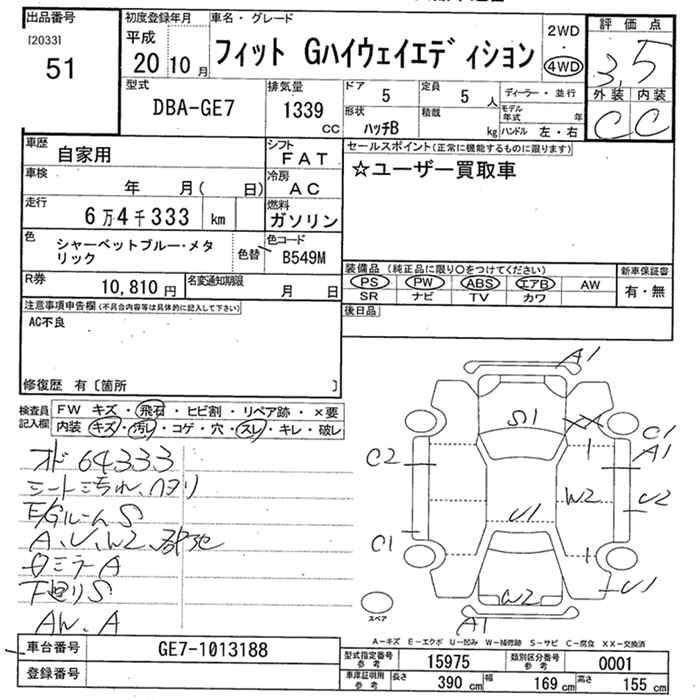 出品番号
[2033]
51
初度登録年月
平成
20 10 月
車名・グレード
フィット Gハイウェイエディション
2WD
・
4WD
評価点
3.5
外装 内装
C C
型式
DBA-GE7
排気量
1339
cc
ドア
5
定員
5 人
形状
ハッチB
積載
kg
ディーラー・並行
モデル年式 年
ハンドル 左・右
車歴
自家用
シフト
FAT
車検
年 月( 日)
冷房
AC
走行
6万4千333 km
燃料
ガソリン
色
シャーベットブルー・メタリック
色替
色コード
B549M
R券
10,810円
名変通知期限
月 日
セールスポイント(正常に機能するものに限ります)
☆ユーザー買取車
装備品 (純正品に限り○をつけてください)
PS PW ABS エアB AW
SR ナビ TV カワ
新車保証書
有・無
後日品
注意事項申告欄(不具合内容等は具体的に記入して下さい)
AC不良
修復歴 有〔箇所 〕
検査員記入欄
FW キズ・飛石・ヒビ割・リペア跡・×要
内装 キズ・汚レ・コゲ・穴・スレ・キレ・破レ
オド 64333
シート汚れ、ヘタリ
E/Gルーム S
A、U、W2、
ミラーA
下廻りS
AW、A
A1
S1
XX
C1
1
A1
C2
W2
U2
U1
C1
1
U1
W2
A1
スペア
A-キズ E-エクボ U-凹み W-補修跡 S-サビ C-腐食 XX-交換済
車台番号
GE7-1013188
登録番号
型式指定番号 参考
15975
類別区分番号 参考
0001
車庫証明用 参考
長さ 390 cm 幅 169 cm 高さ 155 cm